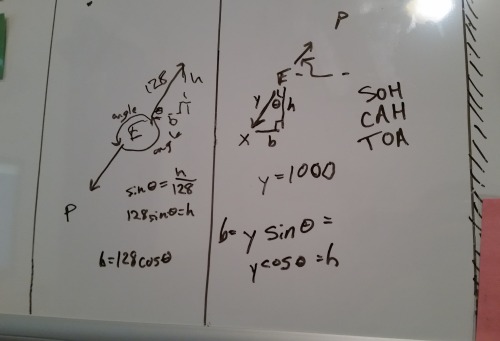 128
h
θ
b
angle
E
P
sinθ = h/128
128sinθ = h
b = 128cosθ
P
E
y
θ
h
X
b
SOH
CAH
TOA
y = 1000
b = y sinθ =
y cosθ = h